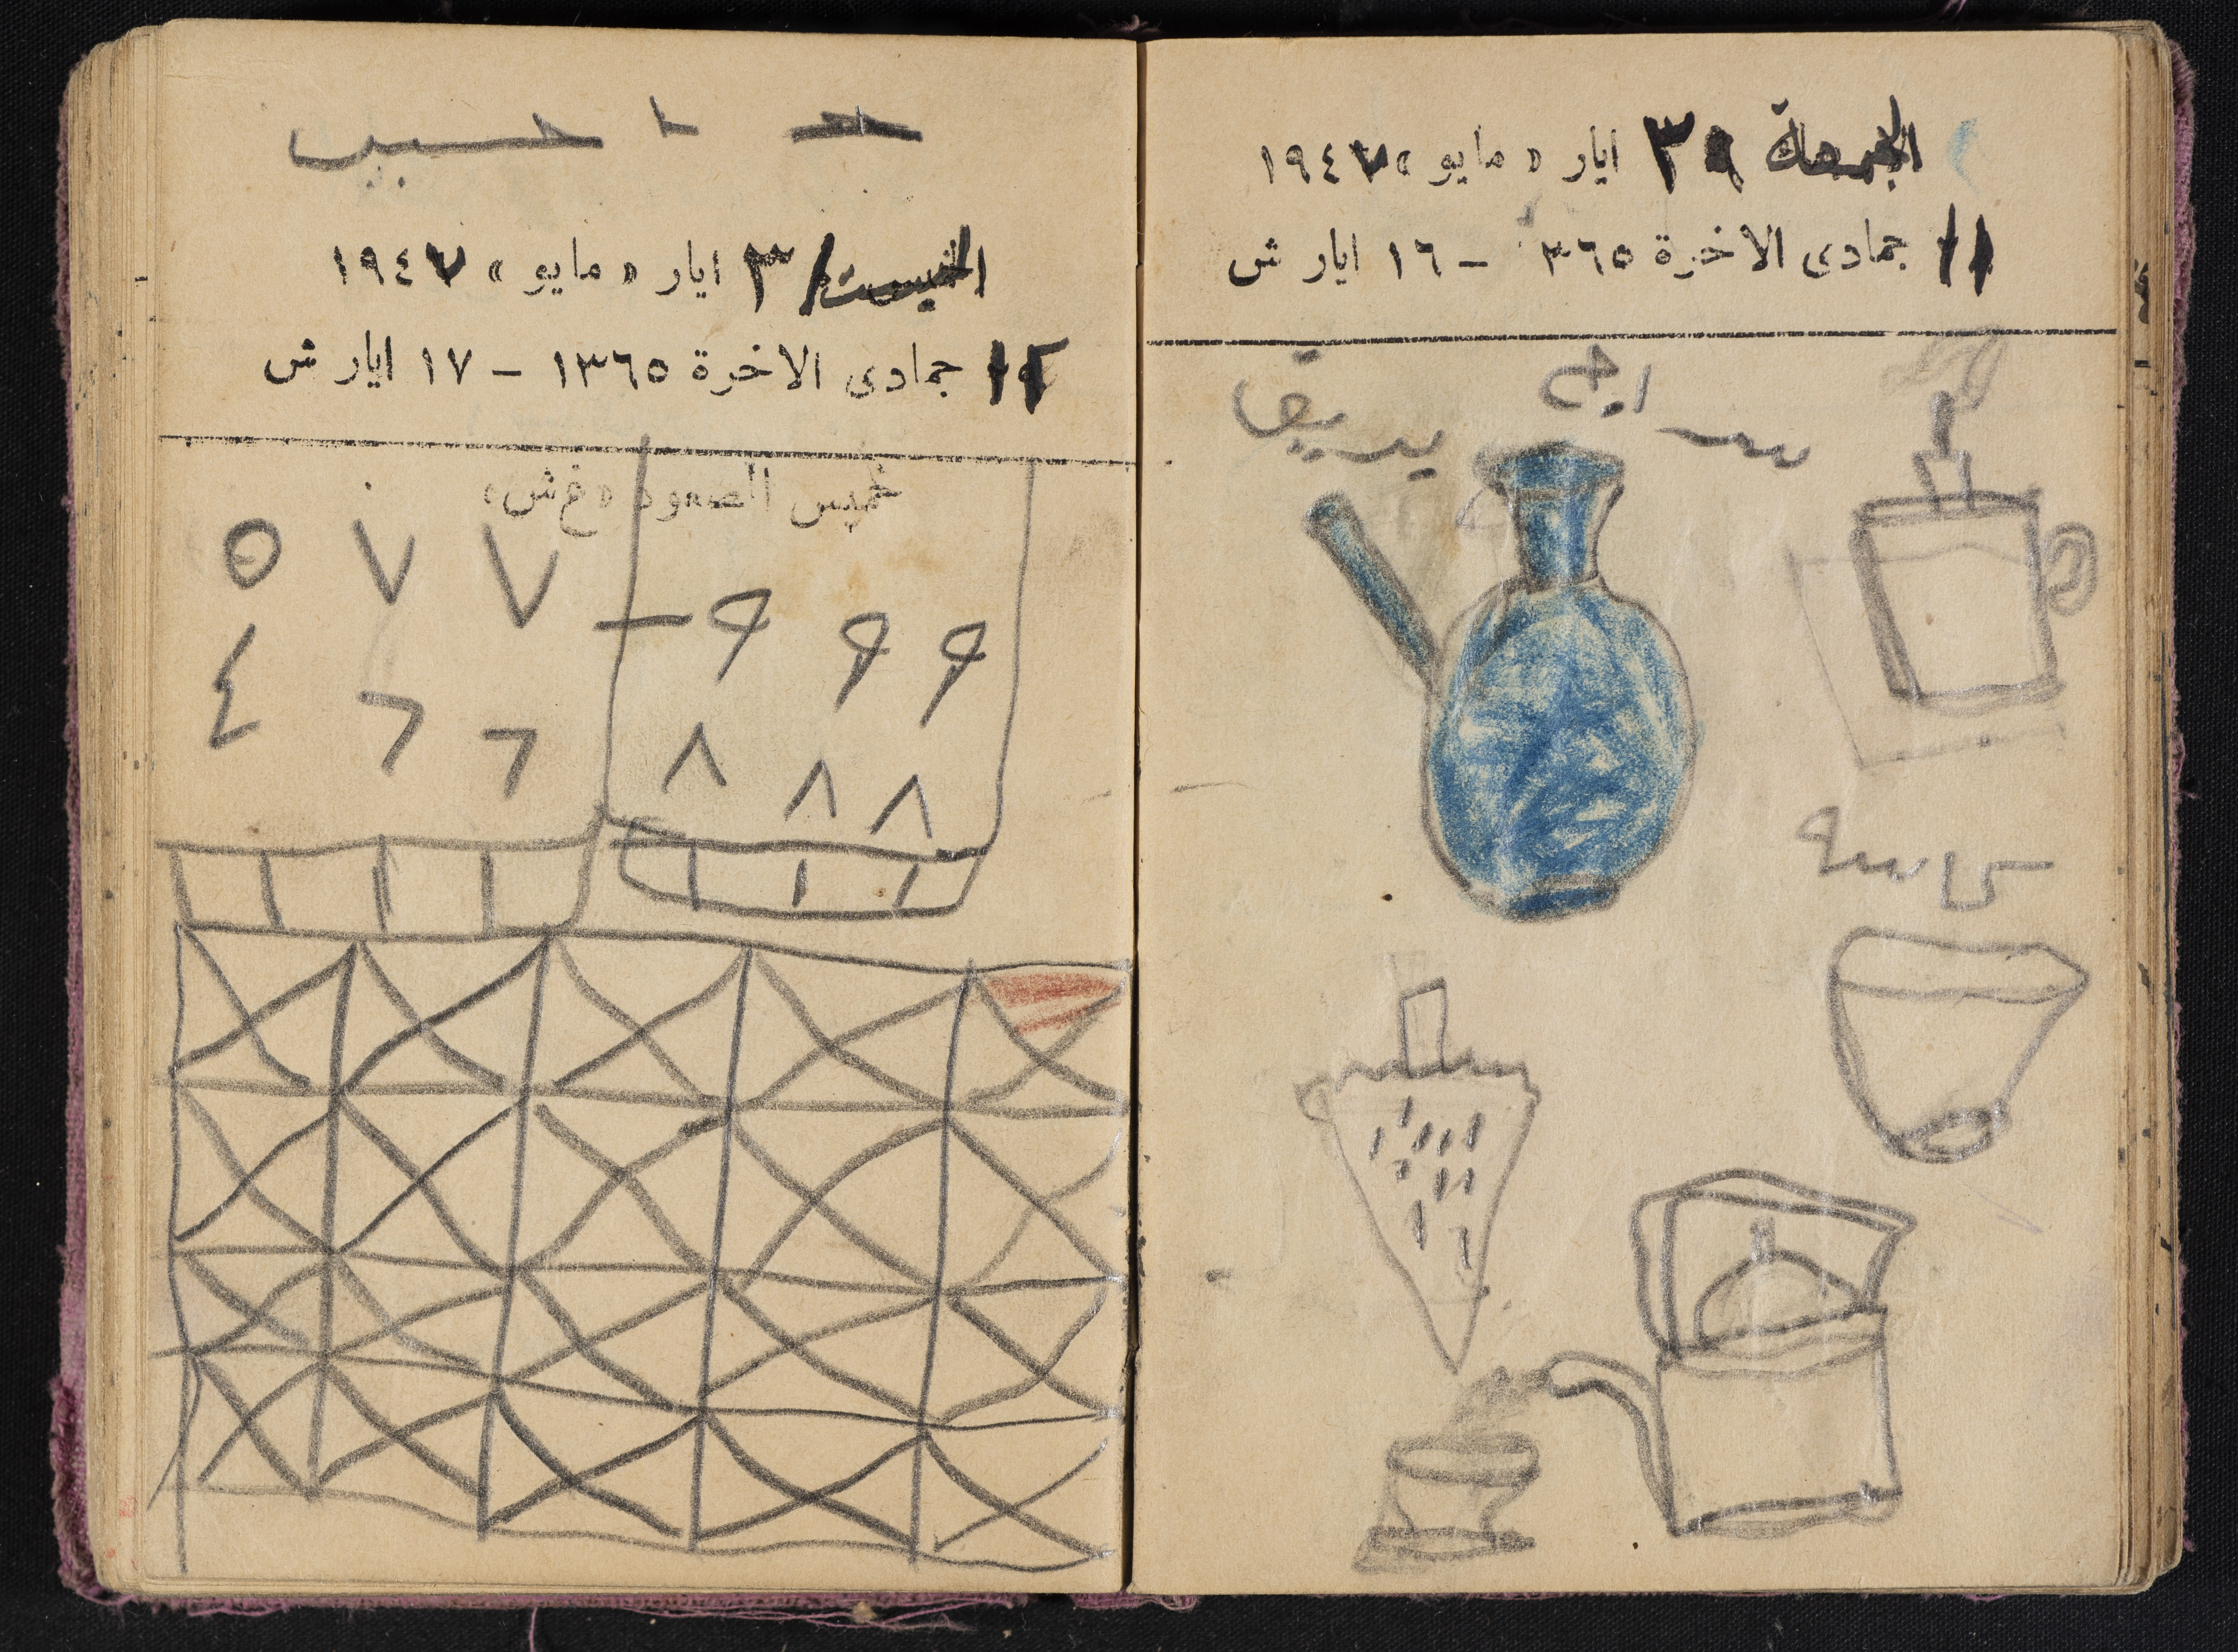 الجمعة ٣٠ ايار «مايو» ١٩٤٧
١١ جمادى الاخرة ٣٦٥ - ١٦ ايار ش
كاسه
السبت ٣١ ايار «مايو» ١٩٤٧
١٢ جمادى الاخرة ١٣٦٥ - ١٧ ايار ش
خميس الصعود «غ ش»
٥ ٧ ٧ - ٩ ٩ ٩
٤ ٦ ٦ ٨ ٨ ٨